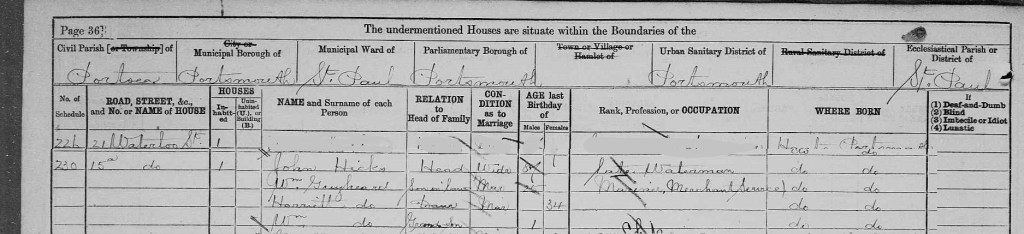 Page 36
The undermentioned Houses are situate within the Boundaries of the
Civil Parish [or Township] of
City or Municipal Borough of
Municipal Ward of
Parliamentary Borough of
Town or Village or Hamlet of
Urban Sanitary District of
Rural Sanitary District of
Ecclesiastical Parish or District of
Portsea Portsmouth St. Paul Portsmouth Portsmouth St. Paul
No. of Schedule
ROAD, STREET, &c., and No. or NAME of HOUSE
HOUSES
In-habited
Unin-habited (U.), or Building (B.)
NAME and Surname of each Person
RELATION to Head of Family
CON-DITION as to Marriage
AGE last Birthday of
Males Females
Rank, Profession, or OCCUPATION
WHERE BORN
If
(1) Deaf-and-Dumb
(2) Blind
(3) Imbecile or Idiot
(4) Lunatic
226 21 Waterloo St. 1
230 15a do 1 John Hicks Head Wido Late Waterman do do
Wm Son in law Mar Mariner, Merchant Service do do
Harriett do Mar 34 do do
Wm do Grandson 1 do do